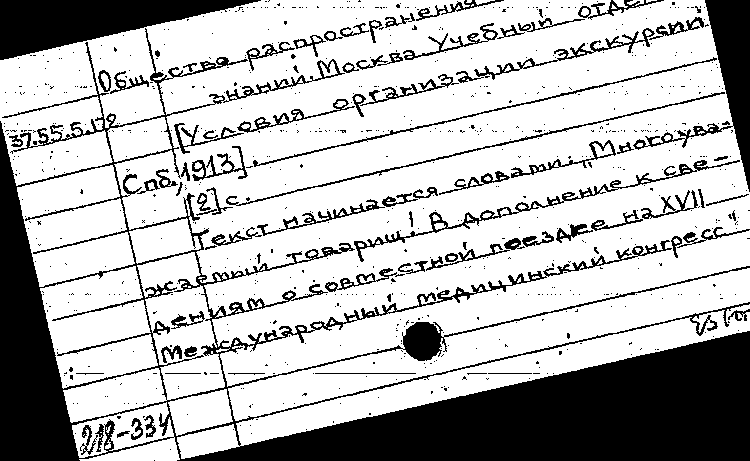 Общества распространения
знаний. Москва. Учебный отдел
37.55.5.179
[Условия организации экскурсии
Спб., 1913].
[2] с.
Текст начинается словами: „Многоува-
жаемый товарищ! В дополнение к све-
дениям о совместной поездке на XVII
международный медицинский конгресс"
218-334